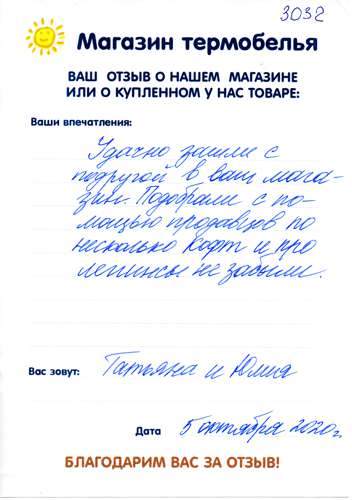 3032
Магазин термобелья
ВАШ ОТЗЫВ О НАШЕМ МАГАЗИНЕ
ИЛИ О КУПЛЕННОМ У НАС ТОВАРЕ:
Ваши впечатления:
Удачно зашли с
подругой в ваш мага-
зин. Подобрали с по-
мощью продавцов по
несколько кофт и про
легинсы не забыли.
Вас зовут: Татьяна и Юлия
Дата 5 октября 2020г.
БЛАГОДАРИМ ВАС ЗА ОТЗЫВ!